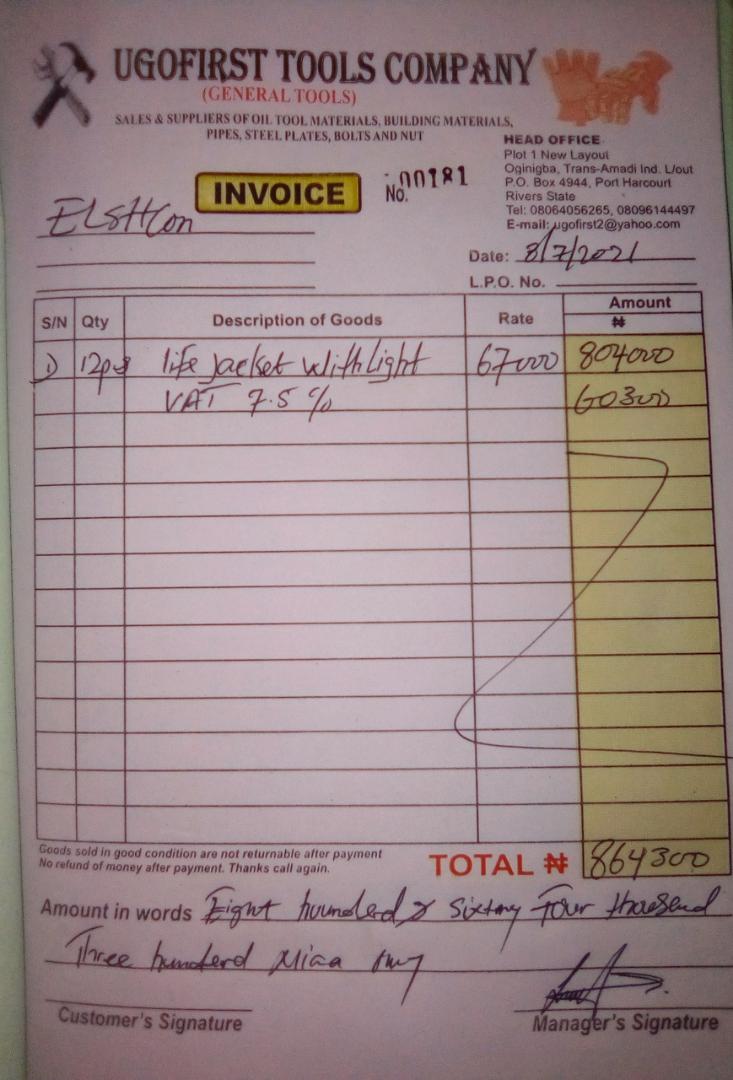 UGOFIRST TOOLS COMPANY
(GENERAL TOOLS)
SALES & SUPPLIERS OF OIL TOOL MATERIALS, BUILDING MATERIALS,
PIPES, STEEL PLATES, BOLTS AND NUT
HEAD OFFICE
Plot 1 New Layout
Oginigba, Trans-Amadi Ind. L/out
P.O. Box 4944, Port Harcourt
Rivers State
Tel: 08064056265, 08096144497
E-mail: ugofirst2@yahoo.com
INVOICE
No. 00181
Date: 8/7/2021
L.P.O. No.
S/N Qty Description of Goods Rate Amount
₦
1) 12pcs life jacket with Light 67000 804000
VAT 7.5 % 60300
Goods sold in good condition are not returnable after payment
No refund of money after payment. Thanks call again.
TOTAL ₦ 864300
Amount in words Eight hounderd & sixtmy Four thousend
Three hunderd Niaa
Customer's Signature
Manager's Signature